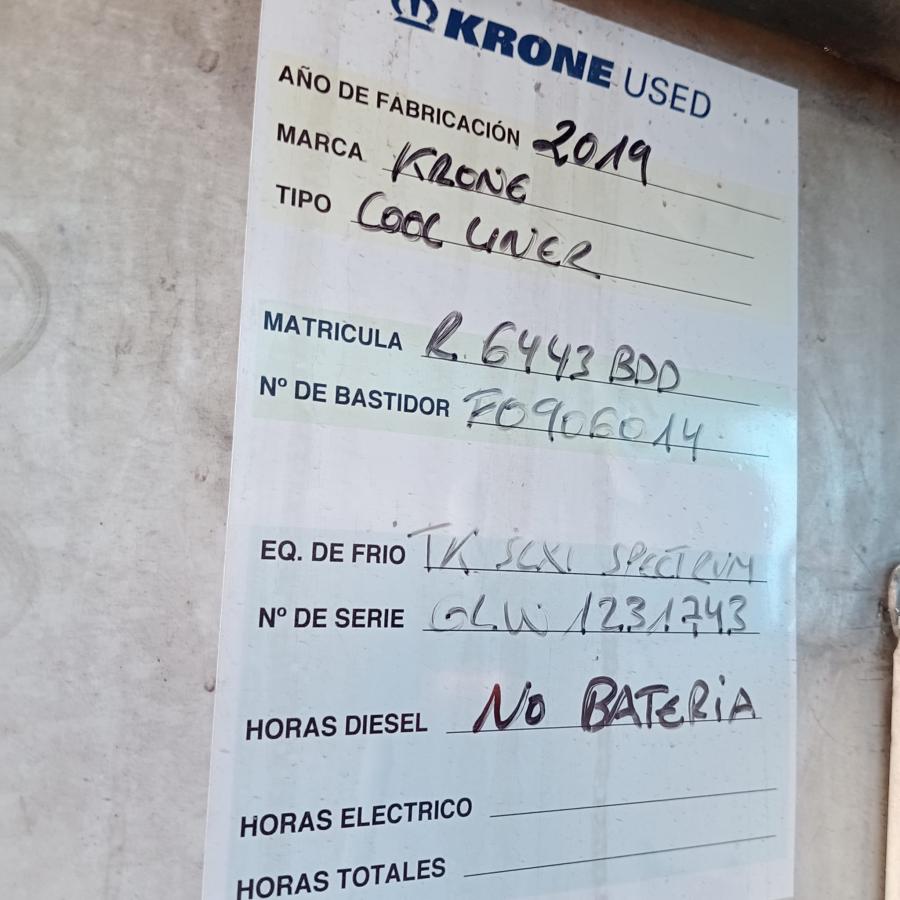 KRONE USED
AÑO DE FABRICACIÓN 2019
MARCA KRONE
TIPO COOL LINER
MATRICULA R. 6443 BDD
Nº DE BASTIDOR F0906014
EQ. DE FRIO TK SLXI SPECTRUM
Nº DE SERIE GLW 1231743
HORAS DIESEL NO BATERIA
HORAS ELECTRICO
HORAS TOTALES